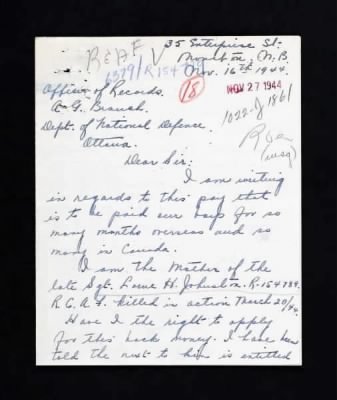 35 Enterprise St.
Moncton, N.B.
Nov. 16th 1944.
RCAF
6379/R154
18
NOV 27 1944
1022-J-1861
Officer of Records.
A-G Branch.
Dept. of National Defence.
Ottawa.
Dear Sir:
I am writing
in regards to this pay that
is to be paid our boys for so
many months overseas and so
many in Canada.
I am the Mother of the
late Sgt. Lorne H. Johnston. R.154784.
R.C.A.F. killed in action March 20/44.
Have I the right to apply
for this back money. I have been
told the next to him is entitled